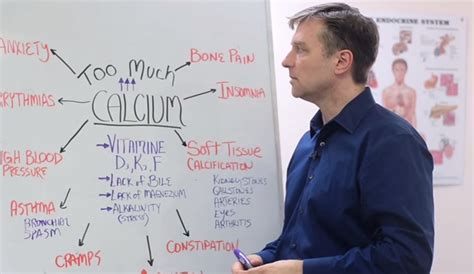 ENDOCRINE SYSTEM
ANXIETY
TOO MUCH
CALCIUM
BONE PAIN
INSOMNIA
HIGH BLOOD
PRESSURE
VITAMINE
D3, K2, F
LACK OF BILE
LACK OF MAGNESIUM
ALKALINITY
(STRESS)
SOFT TISSUE
CALCIFICATION
KIDNEY STONES
GALLSTONES
ARTERIES
EYES
ARTHRITIS
ASTHMA
BRONCHIAL
SPASM
CRAMPS
CONSTIPATION